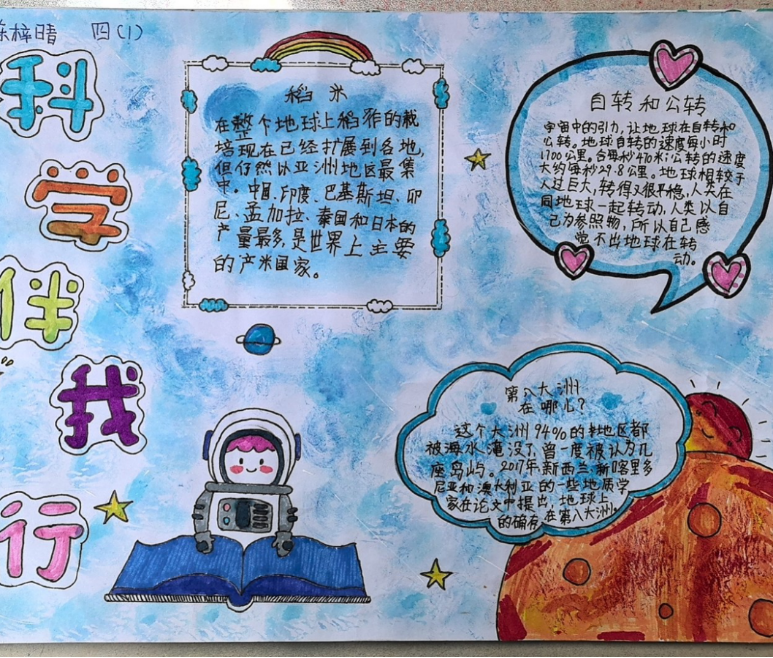 梓晴 四(1)
科
学
伴
我
行
稻米
在整个地球上稻雅的栽
培现在已经扩展到各地,
但仍然以亚洲地区最集
中。中国、印度、巴基斯坦、印
尼、孟加拉、泰国和日本的
产量最多,是世界上主要
的产米国家。
自转和公转
宇宙中的引力,让地球在自转和
公转。地球自转的速度每小时
1700公里。合每秒470米;公转的速度
大约每秒29.8公里。地球相较于
人过巨大,转得又很平稳,人类在
同地球一起转动,人类以自
己为参照物,所以自己感
觉不出地球在转
动。
第八大洲
在哪儿?
这个大洲94%的地区都
被海水淹没了,曾一度被认为几
座岛屿。2017年新西兰、新喀里多
尼亚和澳大利亚的一些地质学
家在论文中提出,地球上
的确有在第八大洲。